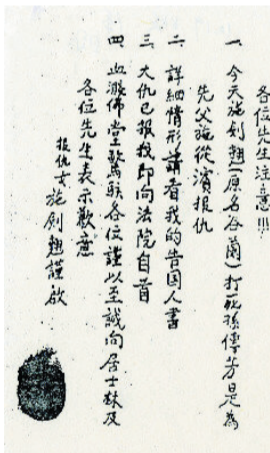 各位先生注意!!!
一、今天施剑翘(原名谷蘭)打死孫傳芳是為
先父施從濱報仇
二、詳細情形請看我的告国人書
三、大仇已报我即向法院自首
四、血濺佛堂驚駭各位謹以至誠向居士林及
各位先生表示歉意
报仇女 施剑翘謹啟